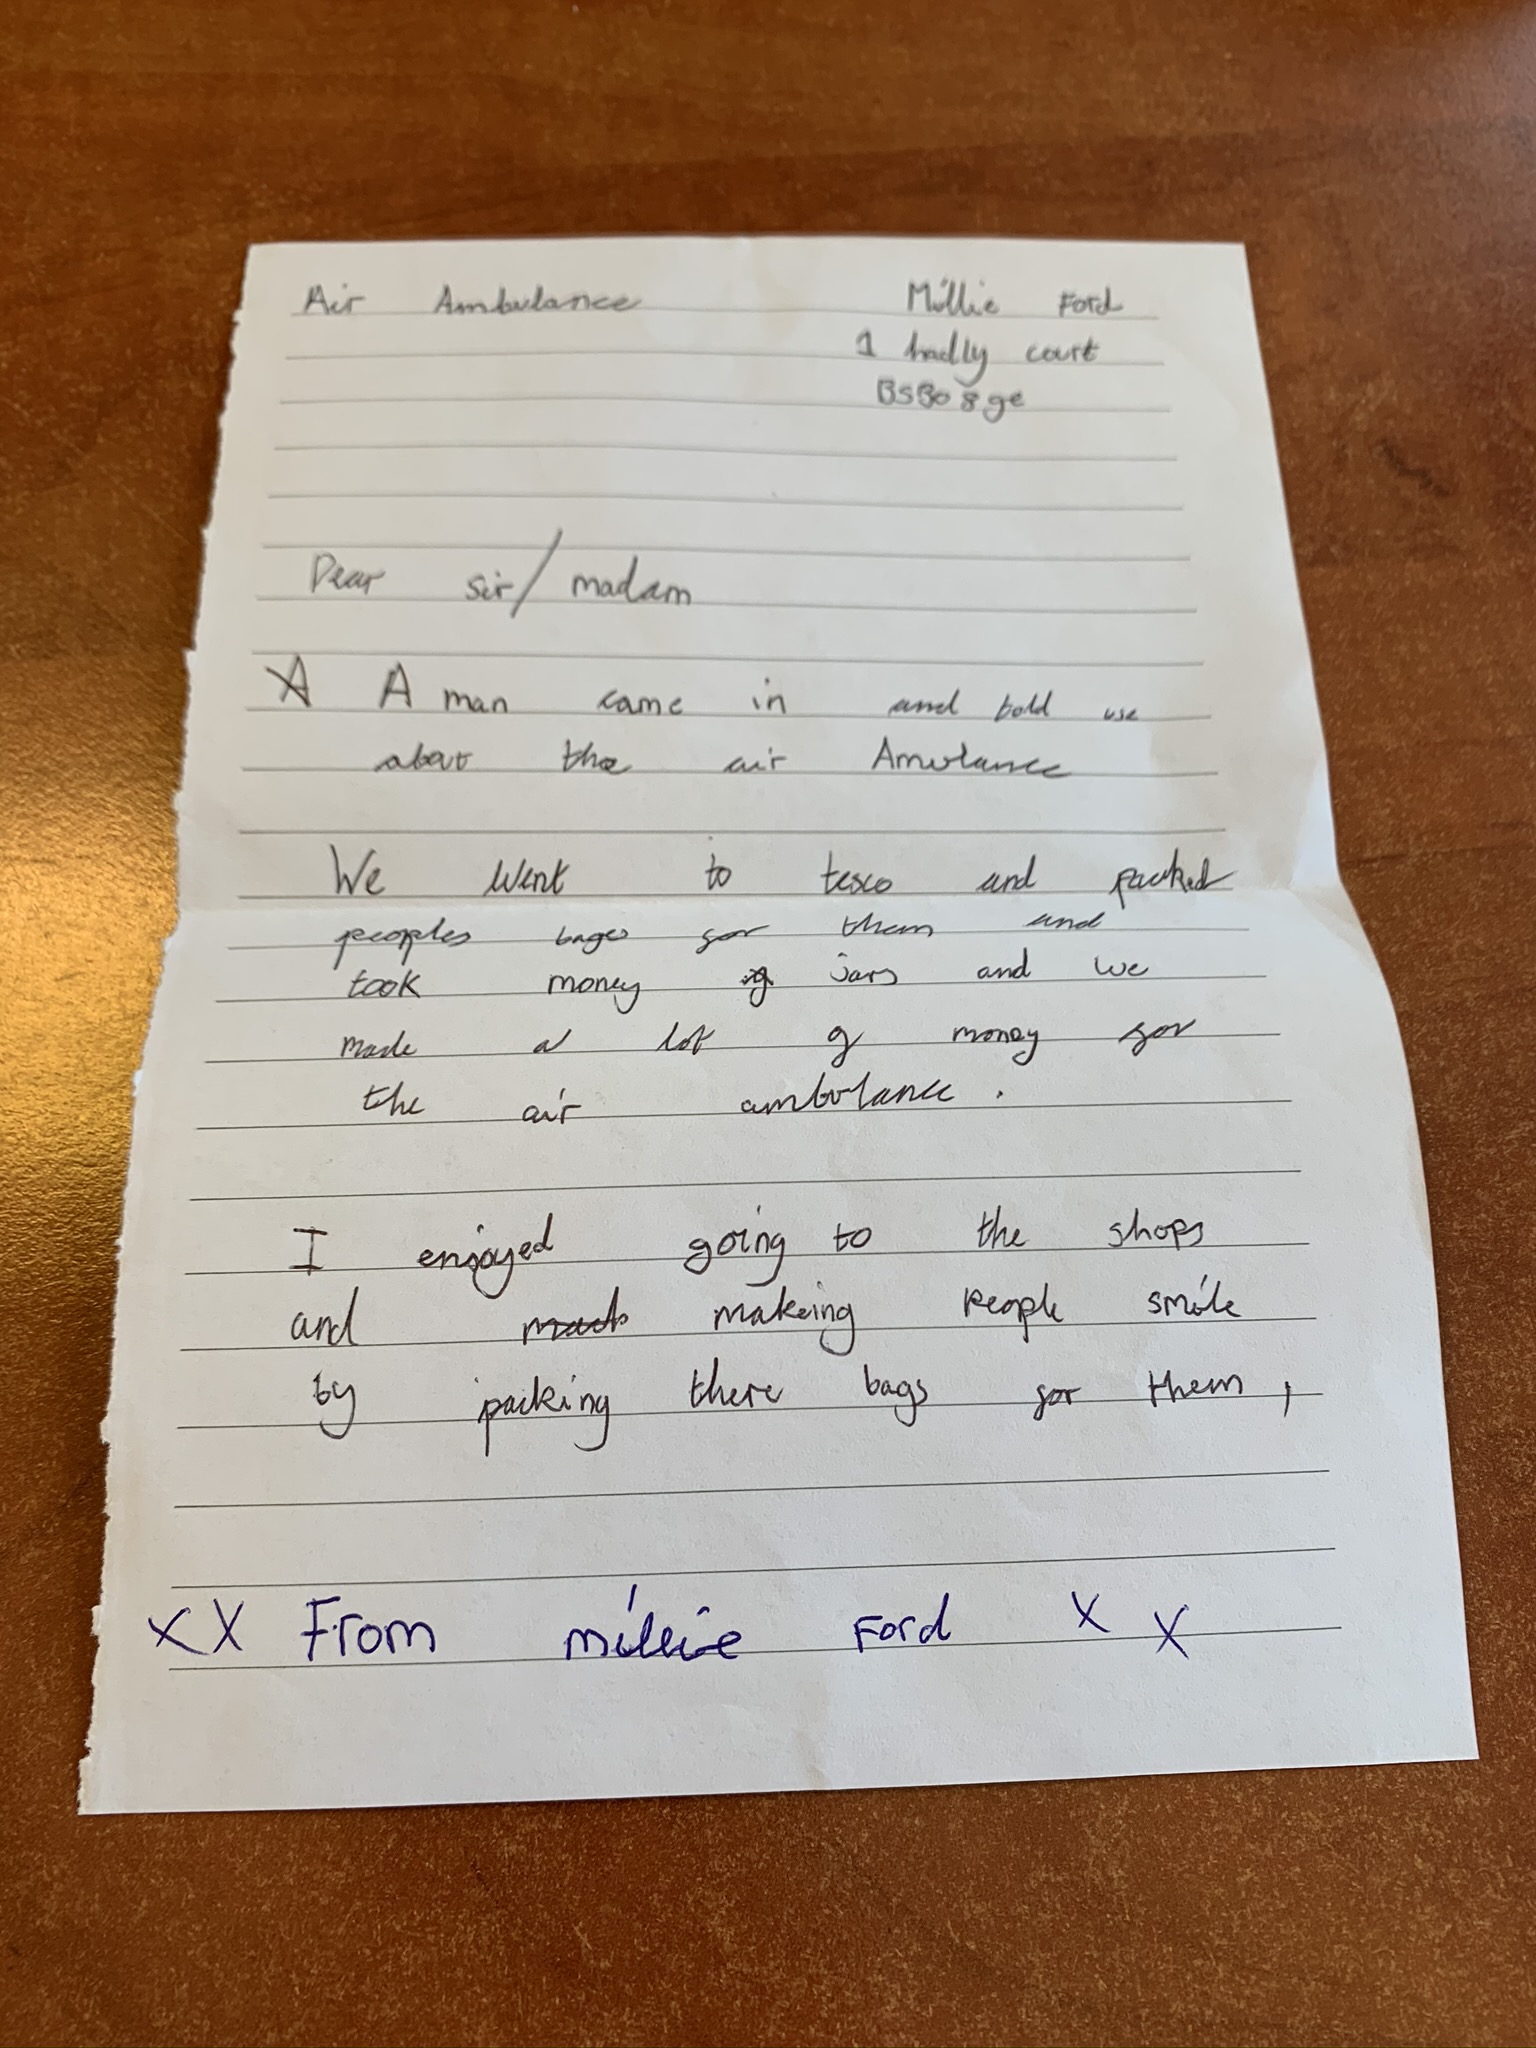 Air Ambulance
Millie Ford
1 hadly court
BS30 8ge
Dear sir/madam
A A man came in and told use
about the air Amulance
We went to tesco and packed
peoples bages for them and
took money of jars and we
made a lot of money for
the air ambulance.
I enjoyed going to the shops
and makeing people smile
by packing there bags for them,
XX From millie Ford X X